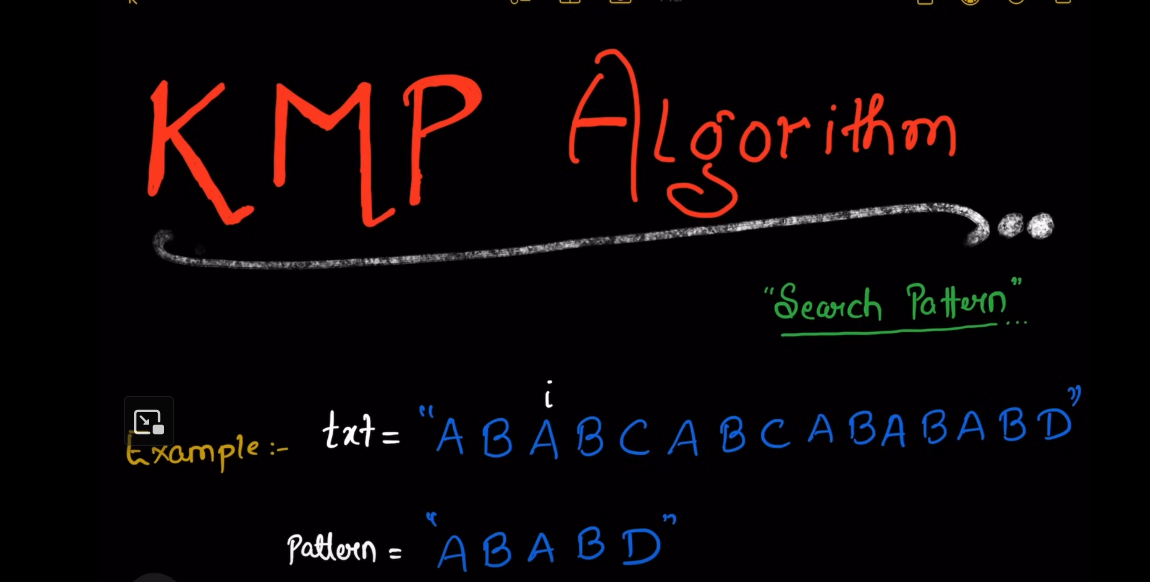 KMP Algorithm
"Search Pattern"...
i
Example:- txt = "A B A B C A B C A B A B A B D"
Pattern = "A B A B D"